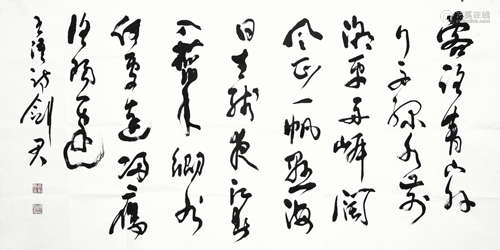 客路青山外
行舟绿水前
潮平两岸阔
风正一帆悬海
日生残夜江春
入旧年乡书
何处达归雁
洛阳边
王湾诗剑君